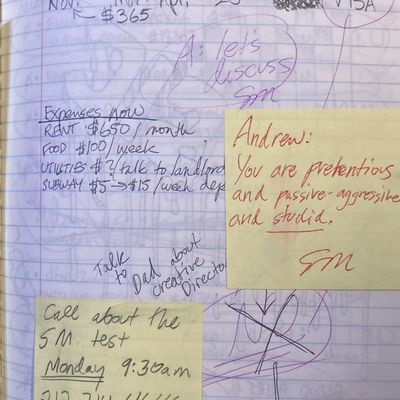 Nov.
VISA
$365
A: let's
discuss
SM
Expenses now
RENT $650/month
FOOD $100/week
UTILITIES $?/talk to landlord
SUBWAY $5→$15/week dep
Andrew:
You are pretentious
and passive-aggressive
and studid.
SM
Talk
to Dad about
creative
Director
Call about the
SM test
Monday 9:30am